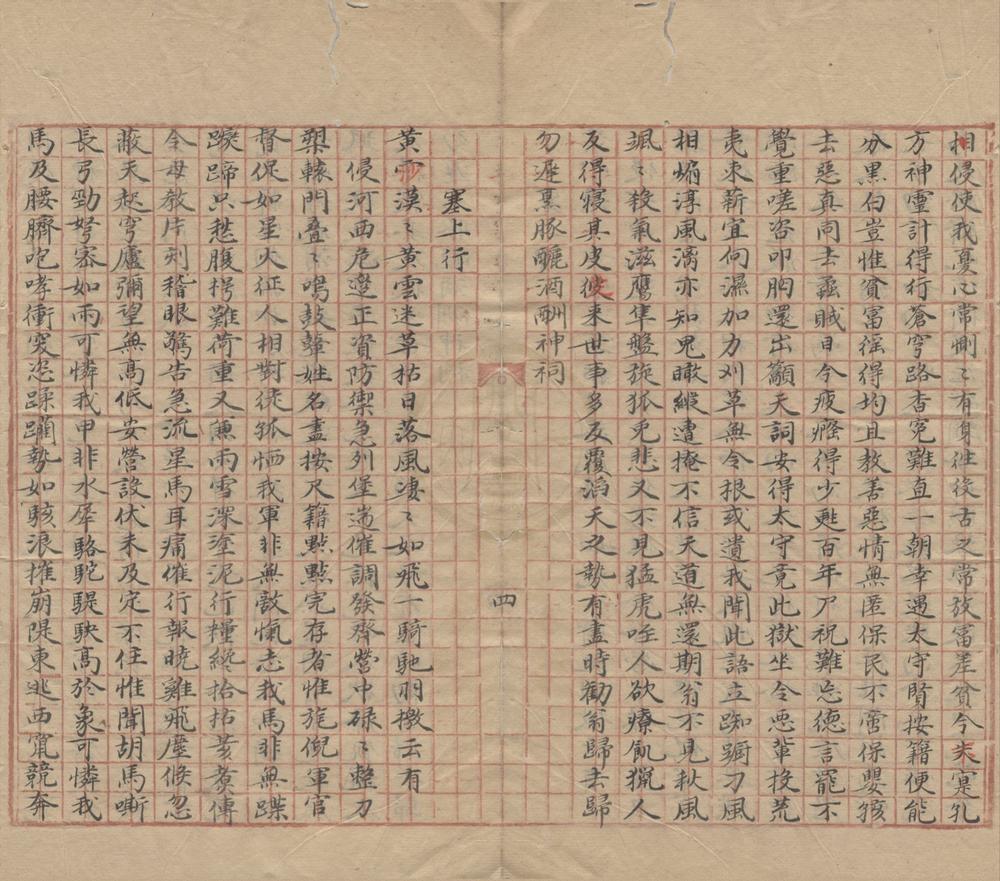 相侵使我憂心常惻〻有身往役古之常放富差貧今失寔孔
方神靈計得行蒼穹路杳冤難直一朝幸遇太守賢按籍便能
分黑白豈惟貧富徭得均且教善惡情無匿保民不啻保嬰孩
去惡真同去蟊賊目今疲癃得少甦百年尸祝難忘德言罷不
覺重嗟咨叩胸還出籲天詞安得太守竟此獄坐令惡輩投荒
夷束薪宜向濕加力刈草無令根或遺我聞此語立踟躕刁風
相煽淳風漓亦知鬼瞰縱遭掩不信天道無還期翁不見秋風
颯〻殺氣滋鷹隼盤旋狐兔悲又不見猛虎噬人欲療飢獵人
反得寢其皮彼來世事多反覆滔天之勢有盡時勸翁歸去歸
勿遲烹豚釃酒酬神祠
塞上行
黃沙漠〻黃雲迷草枯日落風凄〻如飛一騎馳羽檄云有
侵河西危邊正資防禦急列堡遄催調發齊營中碌〻整刀
槊轅門疊〻鳴鼓鼙姓名盡按尺籍點點完存者惟旄倪軍官
督促如星火征人相對徒孤恓我軍非無敵愾志我馬非無蹀
躞蹄只愁腹枵難荷重又兼雨雪深塗泥行糧纔拾拈黃
令母教片刻稽眼驚告急流星馬耳痛催行報曉雞飛塵倏忽
蔽天起穹廬彌望無高低安營設伏未及定不住惟聞胡馬嘶
長弓勁弩密如雨可憐我甲非水犀駱駝騠駃高於象可憐我
馬及腰臍咆哮衝突恣蹂躪勢如駭浪摧崩隄東逃西竄競奔
四